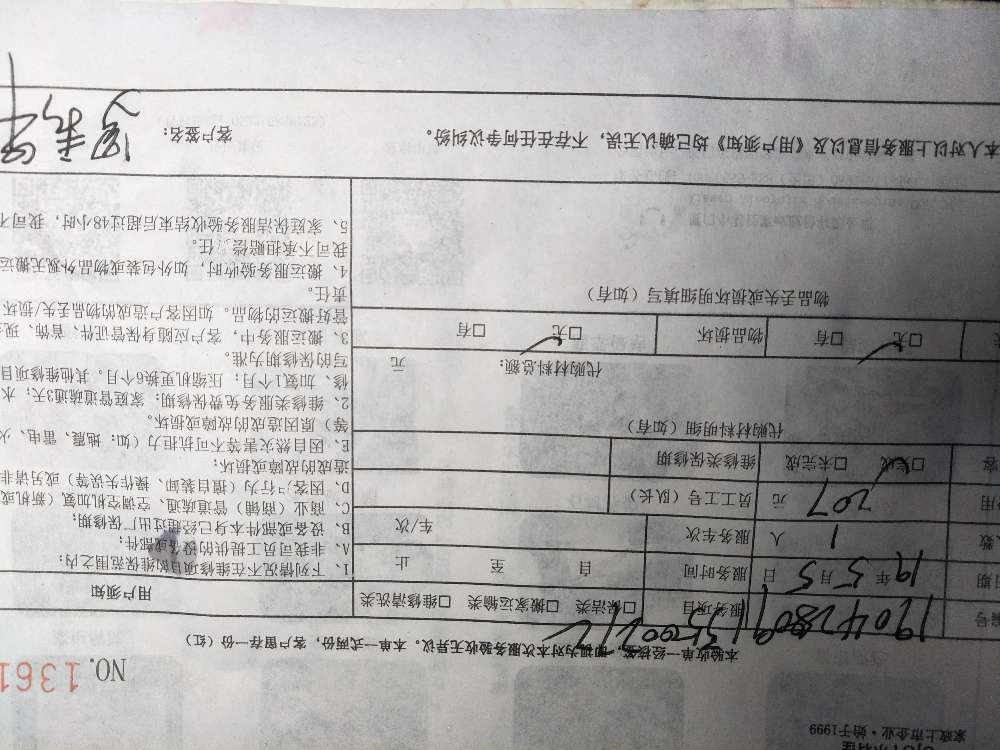 家政上市企业·始于1999
NO. 1361
本验收单一经核签，即视为对本次服务验收无异议。本单一式两份，客户留存一份（红）
编号 190428091350026 服务项目 □保洁类 □搬家运输类 □维修清洗类 用户须知
日期 19年5月5日 服务时间 自 至 止
人数 1 人 服务车次 车/次
费用 207 元 员工工号（队长）
□完成 □未完成 维修类保修期
代购材料明细（如有）
代购材料总额： 元
□无 □有 物品损坏 □无 □有
物品丢失或损坏明细填写（如有）
1、下列情况不在维修项目的维保范围之内：
A、非我司员工提供的设备或部件；
B、设备或部件本身已经超过出厂保修期；
C、商业（商铺）管道疏通、空调空机加氟（新机或
D、因客户行为（擅自装卸、操作失误等）或另请非
造成的故障或损坏；
E、因自然灾害等不可抗拒力（如：地震、雷电、火
等）原因造成的故障或损坏。
2、维修类服务免费保修期：家庭管道疏通3天；水
修、加氟1个月；压缩机更换6个月。其他维修项目
写的保修期为准。
3、搬运服务中，客户应随身保管证件、首饰、现
管好搬运的物品。如因客户造成的物品丢失/损坏
责任。
4、搬运服务验收时，如外包装或物品外观无搬运
我司不承担赔偿责任。
5、家庭保洁服务验收结束后超过48小时，我司不
本人对以上服务信息以及《用户须知》均已确认无误，不存在任何争议纠纷。 客户签名：